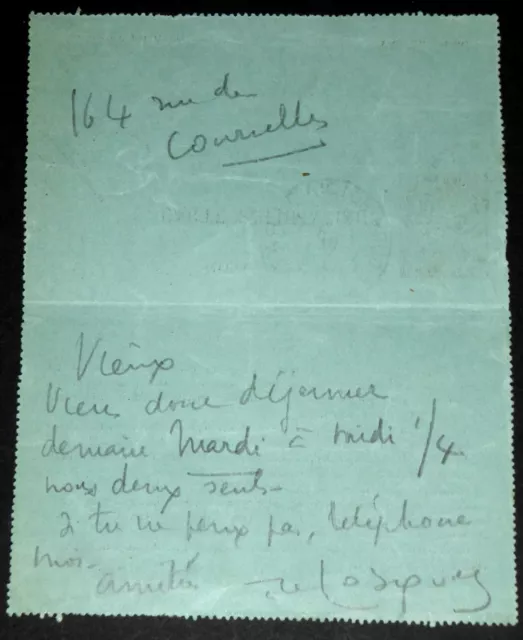 164 rue de
Courcelles
Vieux
Viens donc déjeuner
demain Mardi à midi 1/4
nous deux seuls-
Si tu ne peux pas, téléphone
moi-
amitiés